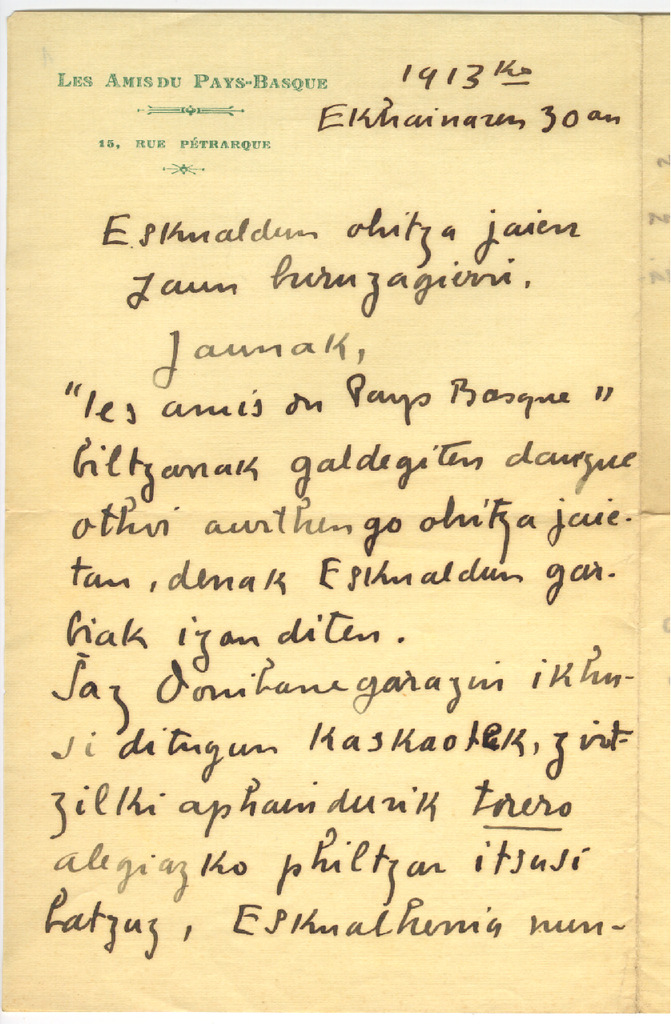 LES AMIS DU PAYS-BASQUE
15, RUE PÉTRARQUE
1913ko
Ekhainaren 30 an
Eskualdun ohitza jaien
Jaun buruzagieri,
Jaunak,
"les amis du Pays Basque"
biltzarrak galdegiten dauzue
othoi aurthengo ohitza jaie-
tan, denak Eskualdun gar-
biak izan diten.
Jaz Donibanegarazin ikhu-
si ditugun kaskaotek, zirt-
zilki aphaindurik torero
alegiazko philtzar itsusi
batzuz, Eskualherria nun-